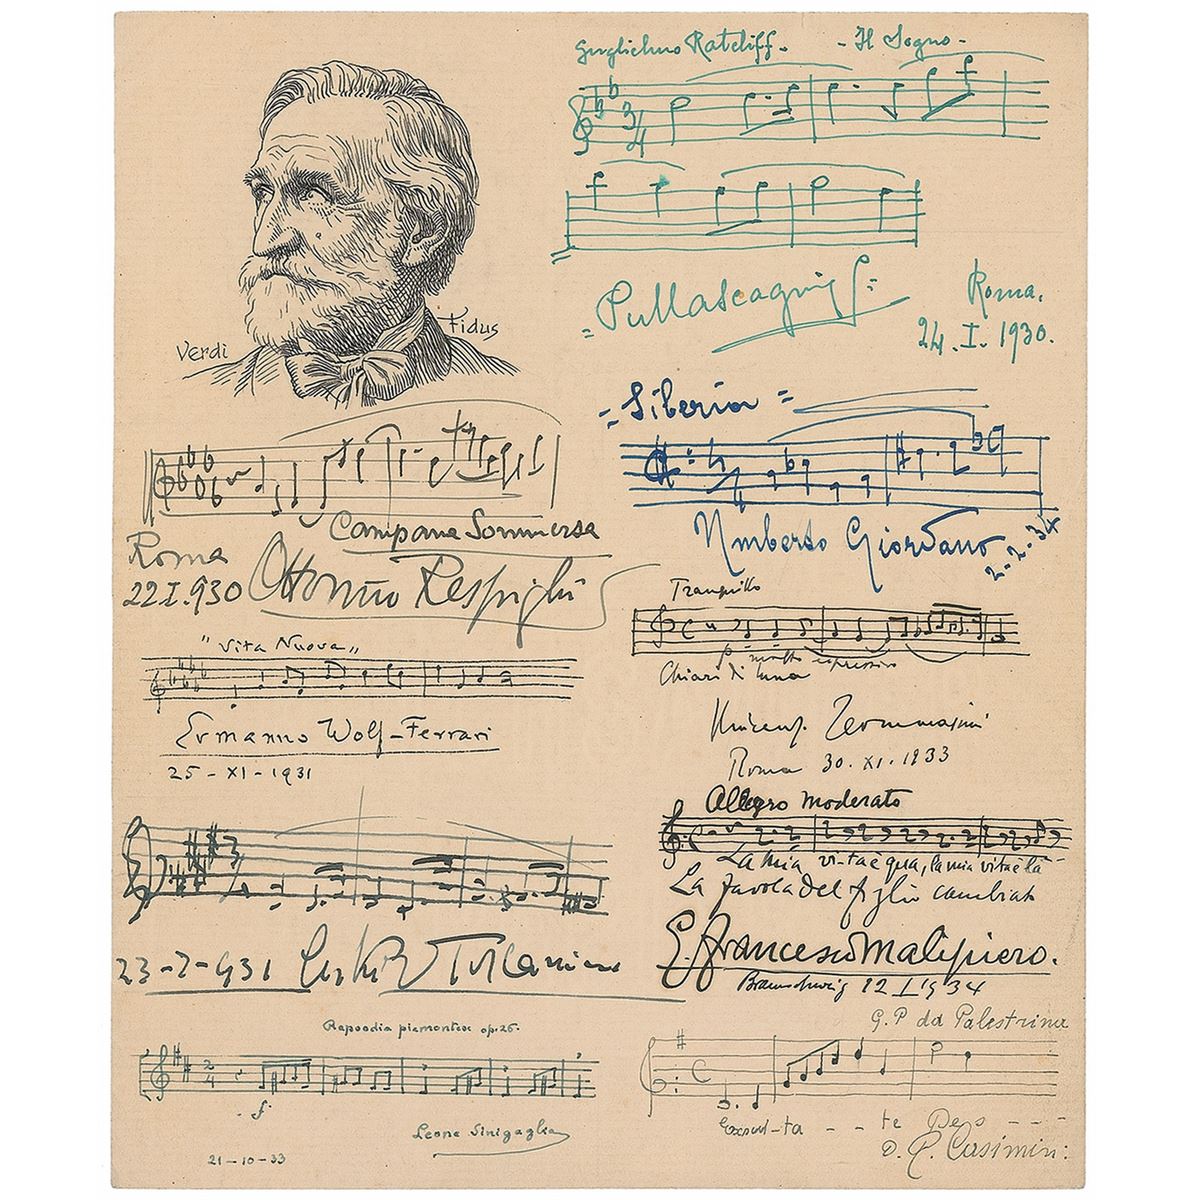 Verdi
Fidus
Guglielmo Ratcliff - - Il Sogno -
3/4
= PMascagni =
Roma.
24. I. 1930.
= Siberia =
Umberto Giordano
2-2-34
Campana Sommersa
Roma
22 I. 930 Ottorino Respighi
Tranquillo
p molto espressivo
Chiari di luna
Vincenzo Tommasini
Roma 30. XI. 1933
"Vita Nuova"
Ermanno Wolf-Ferrari
25 - XI - 1931
Allegro moderato
La mia vita è qua, la mia vita è là -
La favola del figlio cambiato
G. Francesco Malipiero.
Braunschweig 12 I 1934
23-2-931
Rapsodia piemontese op. 26.
2/4
f
Leone Sinigaglia
21-10-33
G. P da Palestrina
C
Exsul-ta - - te Deo - - -
D. R. Casimiri: